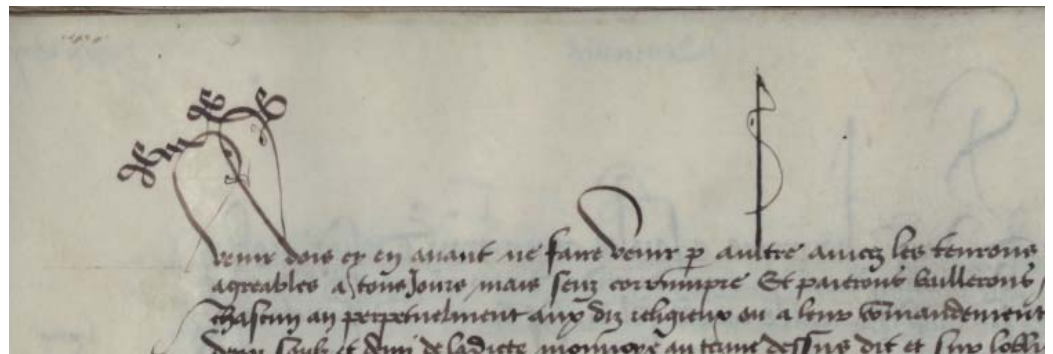 venir dois cy en avant ne faire venir p aultre aincz les tenrons
agreables a tous Jours mais senz corrumpre Et paierons baillerons
chascun an perpetuelment aux diz religieux ou a leur comandement
demi de ladicte monnoye au terme dessus dit et sur